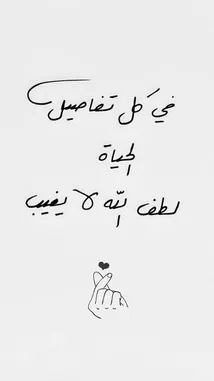 في كل تفاصيل
الحياة
لطف الله لا يغيب